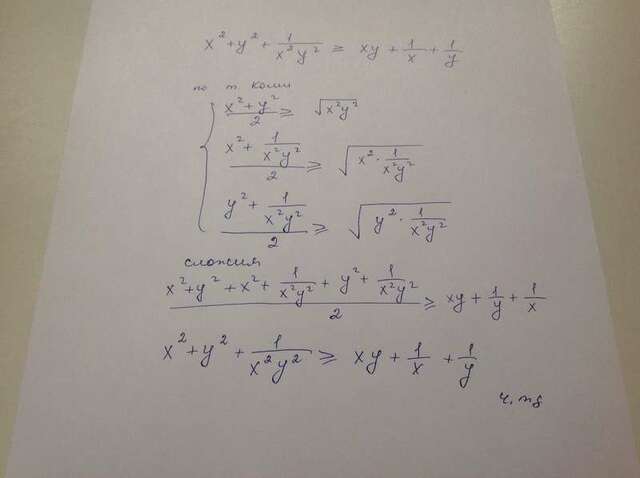 x² + y² + 1/(x²y²) ≥ xy + 1/x + 1/y
по т Коши
(x² + y²)/2 ≥ √(x²y²)
(x² + 1/(x²y²))/2 ≥ √(x² · 1/(x²y²))
(y² + 1/(x²y²))/2 ≥ √(y² · 1/(x²y²))
сложим
(x² + y² + x² + 1/(x²y²) + y² + 1/(x²y²))/2 ≥ xy + 1/y + 1/x
x² + y² + 1/(x²y²) ≥ xy + 1/x + 1/y
ч, тд